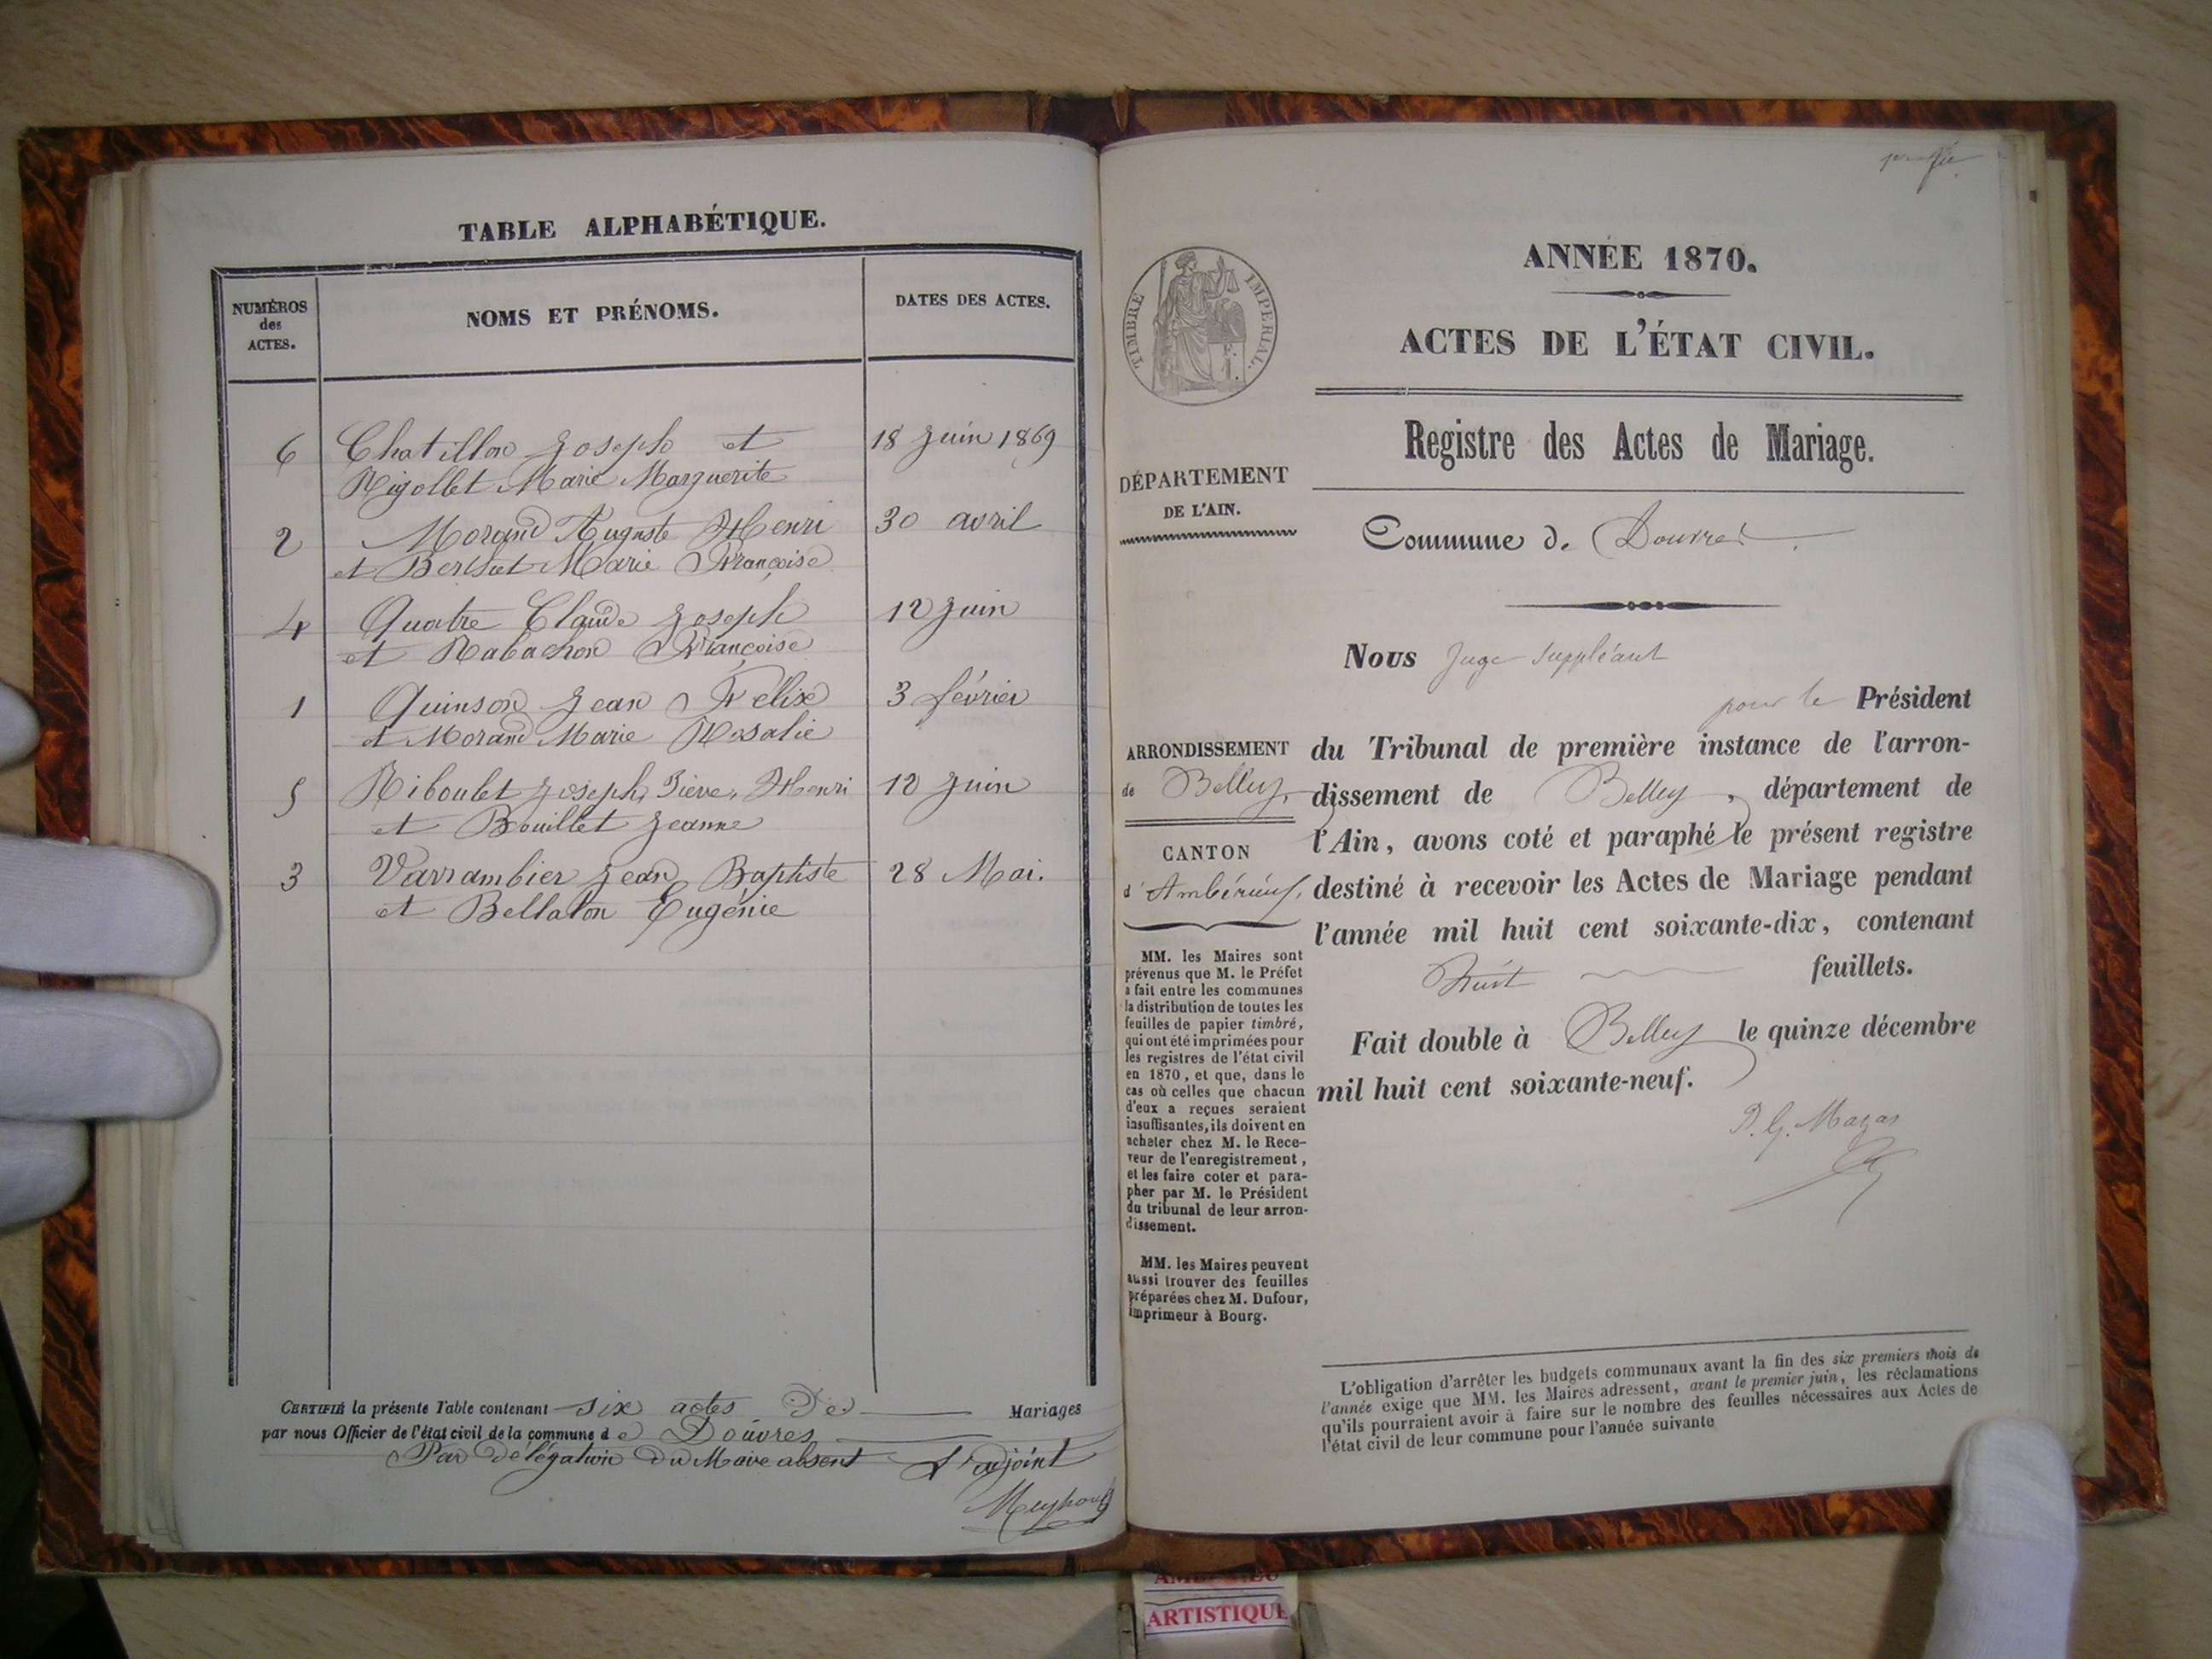 TABLE ALPHABÉTIQUE.
NUMÉROS
des
ACTES.
NOMS ET PRÉNOMS.
DATES DES ACTES.
6 Chatillon Joseph et 18 Juin 1869
Rigollet Marie Marguerite
2 Morand Auguste Henri 30 avril
et Berthet Marie Françoise
4 Quatre Claude Joseph 12 Juin
et Rabachon Françoise
1 Quinson Jean Félix 3 février
et Morand Marie Rosalie
5 Riboulet Joseph, Pierre, Henri 12 Juin
et Bouillet Jeanne
3 Varrambier Jean Baptiste 28 Mai.
et Bellaton Eugénie
CERTIFIÉ la présente Table contenant six actes de Mariages
par nous Officier de l'état civil de la commune de Douvres
Par délégation du Maire absent L'adjoint
TIMBRE IMPÉRIAL.
DÉPARTEMENT
DE L'AIN.
ARRONDISSEMENT
de Belley,
CANTON
d'Ambérieux,
MM. les Maires sont
prévenus que M. le Préfet
a fait entre les communes
la distribution de toutes les
feuilles de papier timbré,
qui ont été imprimées pour
les registres de l'état civil
en 1870, et que, dans le
cas où celles que chacun
d'eux a reçues seraient
insuffisantes, ils doivent en
acheter chez M. le Rece-
veur de l'enregistrement,
et les faire coter et para-
pher par M. le Président
du tribunal de leur arron-
dissement.
MM. les Maires peuvent
aussi trouver des feuilles
préparées chez M. Dufour,
imprimeur à Bourg.
ANNÉE 1870.
ACTES DE L'ÉTAT CIVIL.
Registre des Actes de Mariage.
Commune de Douvres.
Nous Juge suppléant
pour le Président
du Tribunal de première instance de l'arron-
dissement de Belley, département de
l'Ain, avons coté et paraphé le présent registre
destiné à recevoir les Actes de Mariage pendant
l'année mil huit cent soixante-dix, contenant
huit feuillets.
Fait double à Belley le quinze décembre
mil huit cent soixante-neuf.
P. G. Mazas
L'obligation d'arrêter les budgets communaux avant la fin des six premiers mois de
l'année exige que MM. les Maires adressent, avant le premier juin, les réclamations
qu'ils pourraient avoir à faire sur le nombre des feuilles nécessaires aux Actes de
l'état civil de leur commune pour l'année suivante
ARTISTIQUE